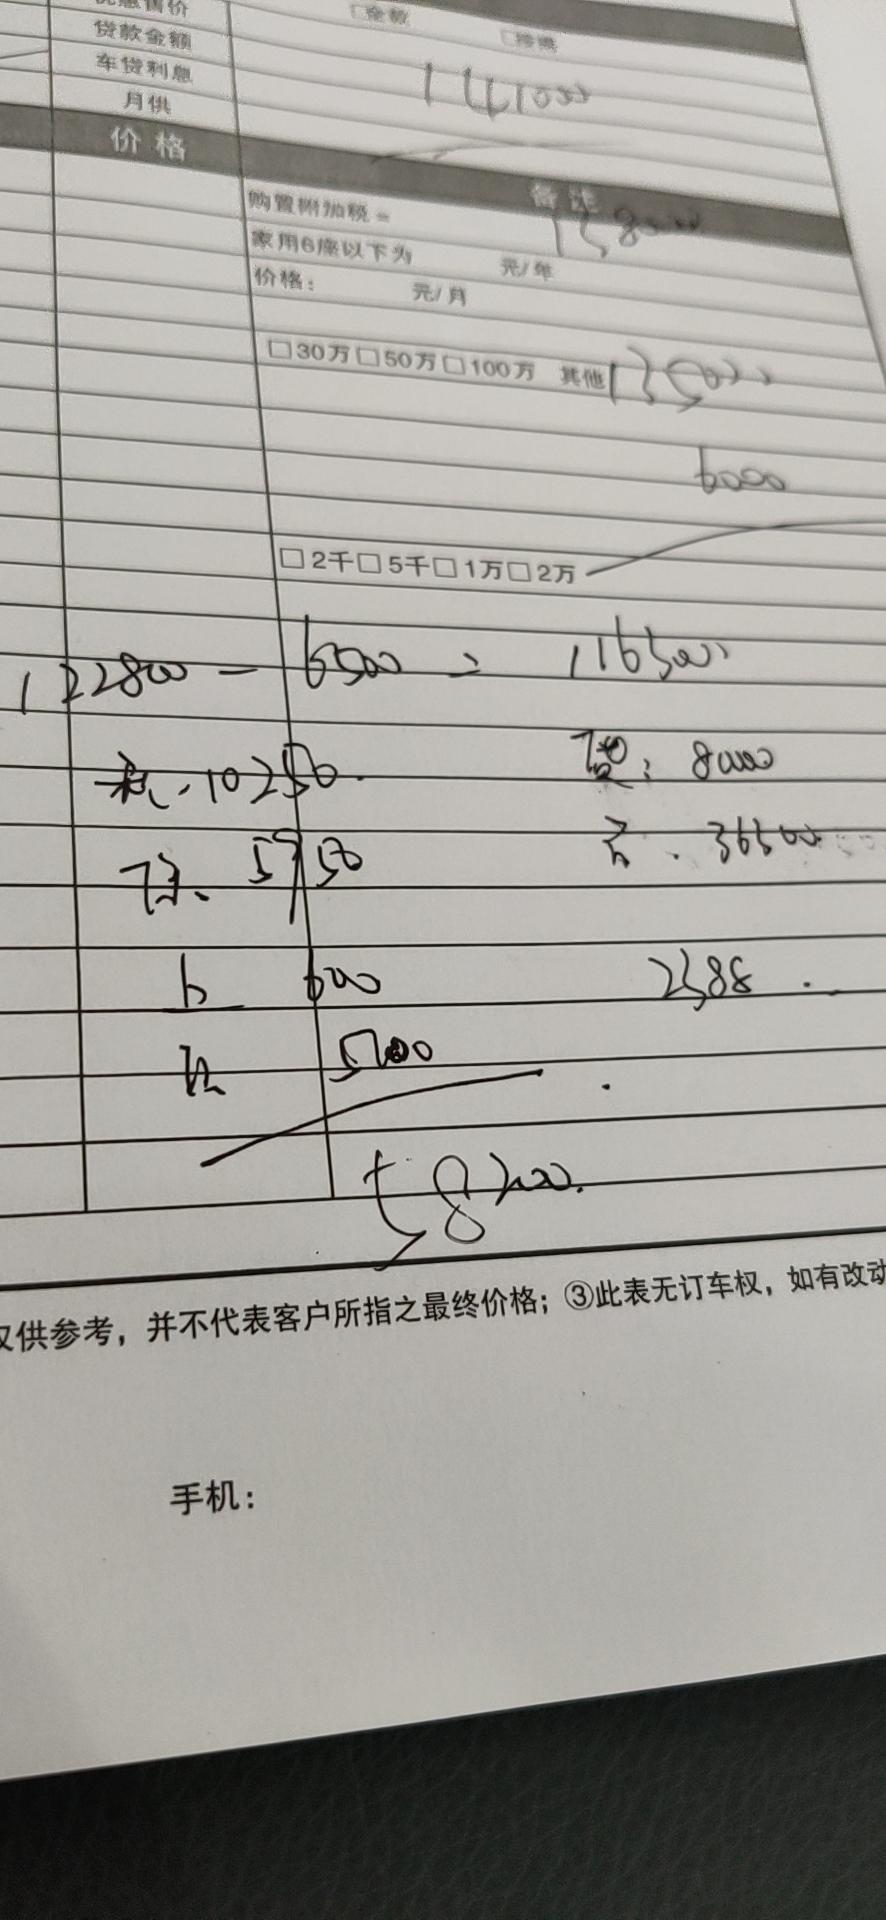 优惠售价 □全款
贷款金额 □按揭
车贷利息
月供 141000
价格 备注
购置附加税= 158000
家用6座以下为 元/年
价格： 元/月
□30万□50万□100万 其他 135000
6000
□2千□5千□1万□2万
122800 - 6500 = 116300
10250 贷：80000
保、5950 36300
600 2588
5700
58200
仅供参考，并不代表客户所指之最终价格；③此表无订车权，如有改动
手机：